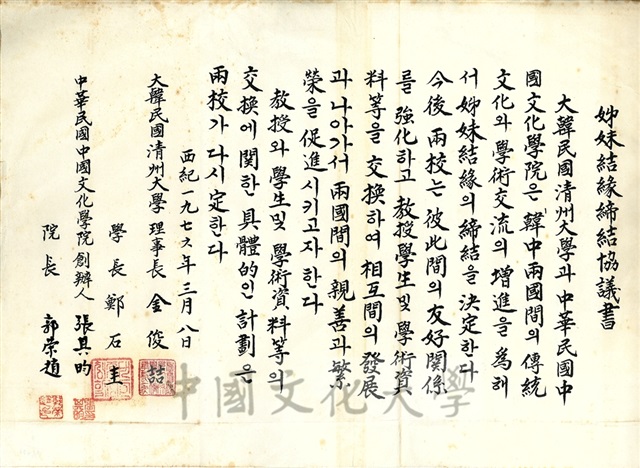 姊妹結緣締結協議書
大韓民國淸州大學과 中華民國中
國文化學院은 韓中兩國間의 傳統
文化와 學術交流의 增進을 爲해
서 姊妹結緣의 締結을 決定한다
今後 兩校는 彼此間의 友好關係
를 強化하고 敎授學生및 學術資
料等을 交換하여 相互間의 發展
과 나아가서 兩國間의 親善과 繁
榮을 促進시키고자 한다
敎授와 學生및 學術資料等의
交換에 關한 具體的인 計劃은
兩校가 다시 定한다
西紀一九七六年三月八日
大韓民國淸州大學 理事長 金俊喆
學長 鄭石圭
中華民國中國文化學院創辦人 張其昀
院長 郭榮趙
中國文化大學